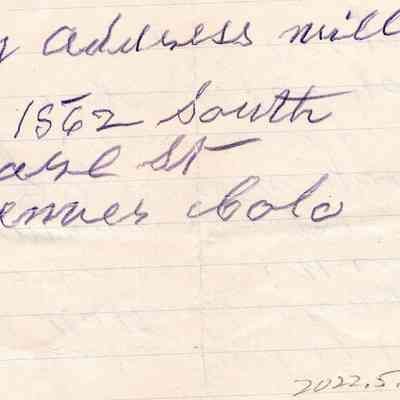 y address will
1562 South
earl St
enver Colo
2022.5.